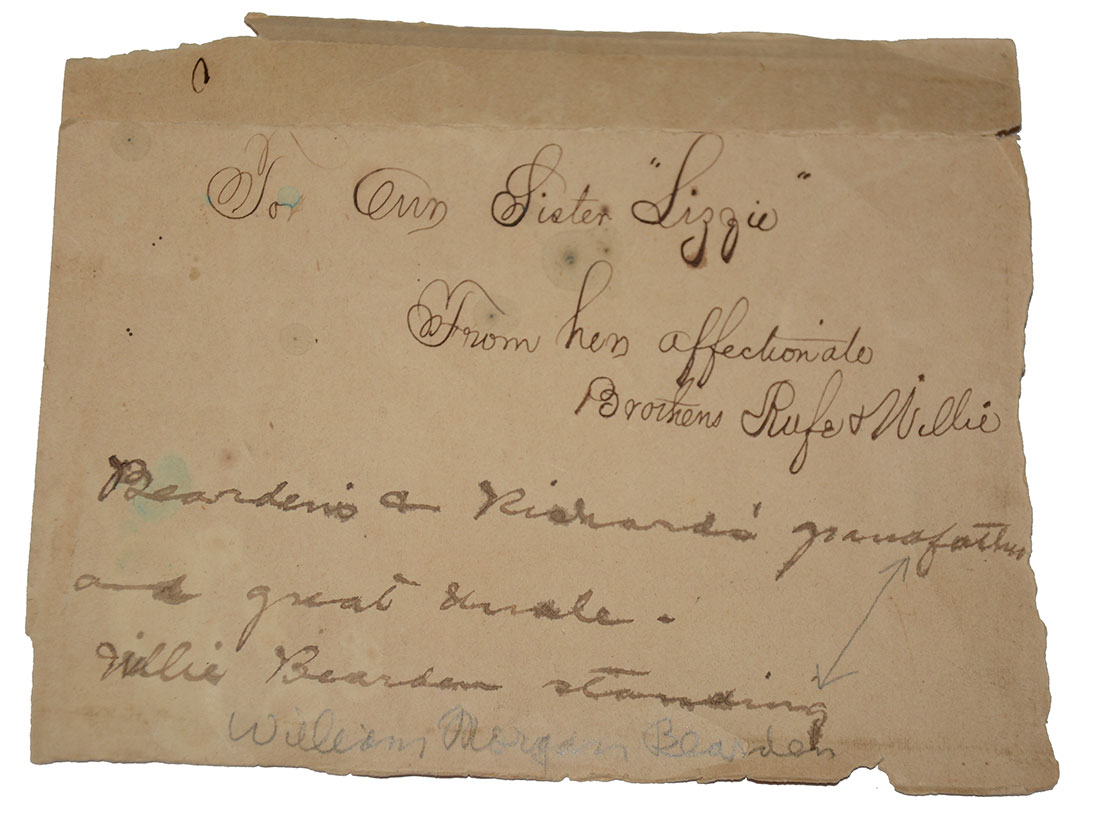 To Our Sister "Lizzie"
From her affectionate
Brothers Rufe & Willie
Bearden's & Richards' grandfather
and great Uncle.
Willie Bearden standing
William Morgan Bearden